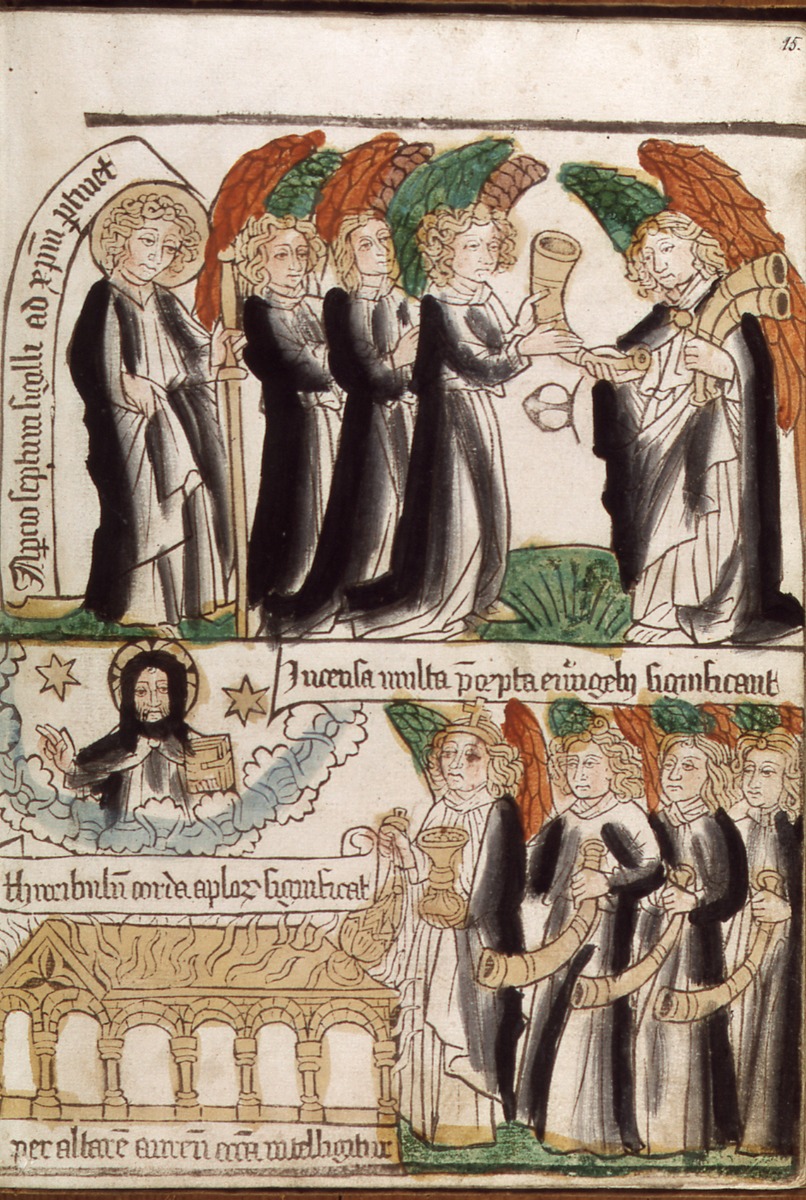 15.
Apercio septimi sigilli ad xpm ptinet
Incensa multa pcepta ewngelij significant
thuribulu corda aplor significat
per altare aureu ecca intelligitur